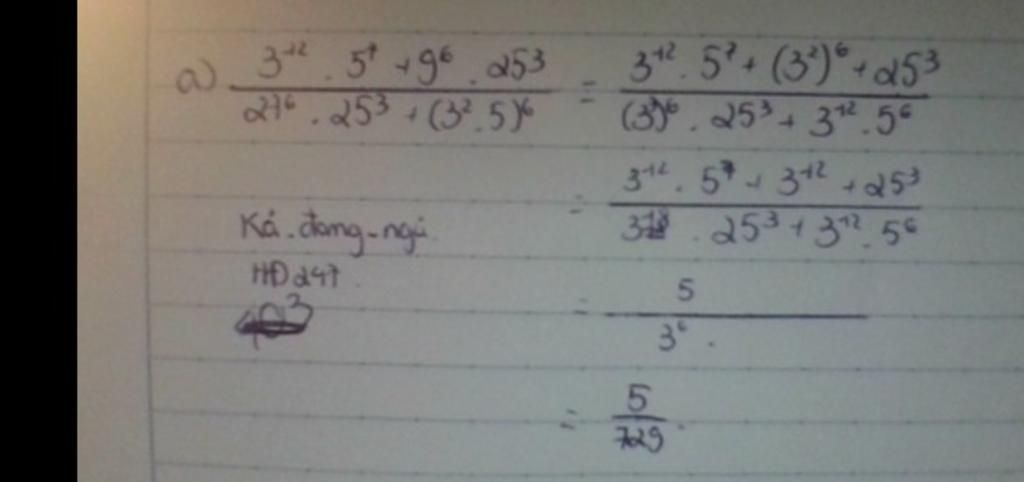 a) \frac{3^{12} . 5^7 + 9^6 . 25^3}{27^6 . 25^3 + (3^2 . 5)^6} = \frac{3^{12} . 5^7 + (3^2)^6 + 25^3}{(3^3)^6 . 25^3 + 3^{12} . 5^6}
= \frac{3^{12} . 5^7 + 3^{12} + 25^3}{3^{18} . 25^3 + 3^{12} . 5^6}
Ká-đang-ngủ
HĐ247.
= \frac{5}{3^6 .}
= \frac{5}{729} .